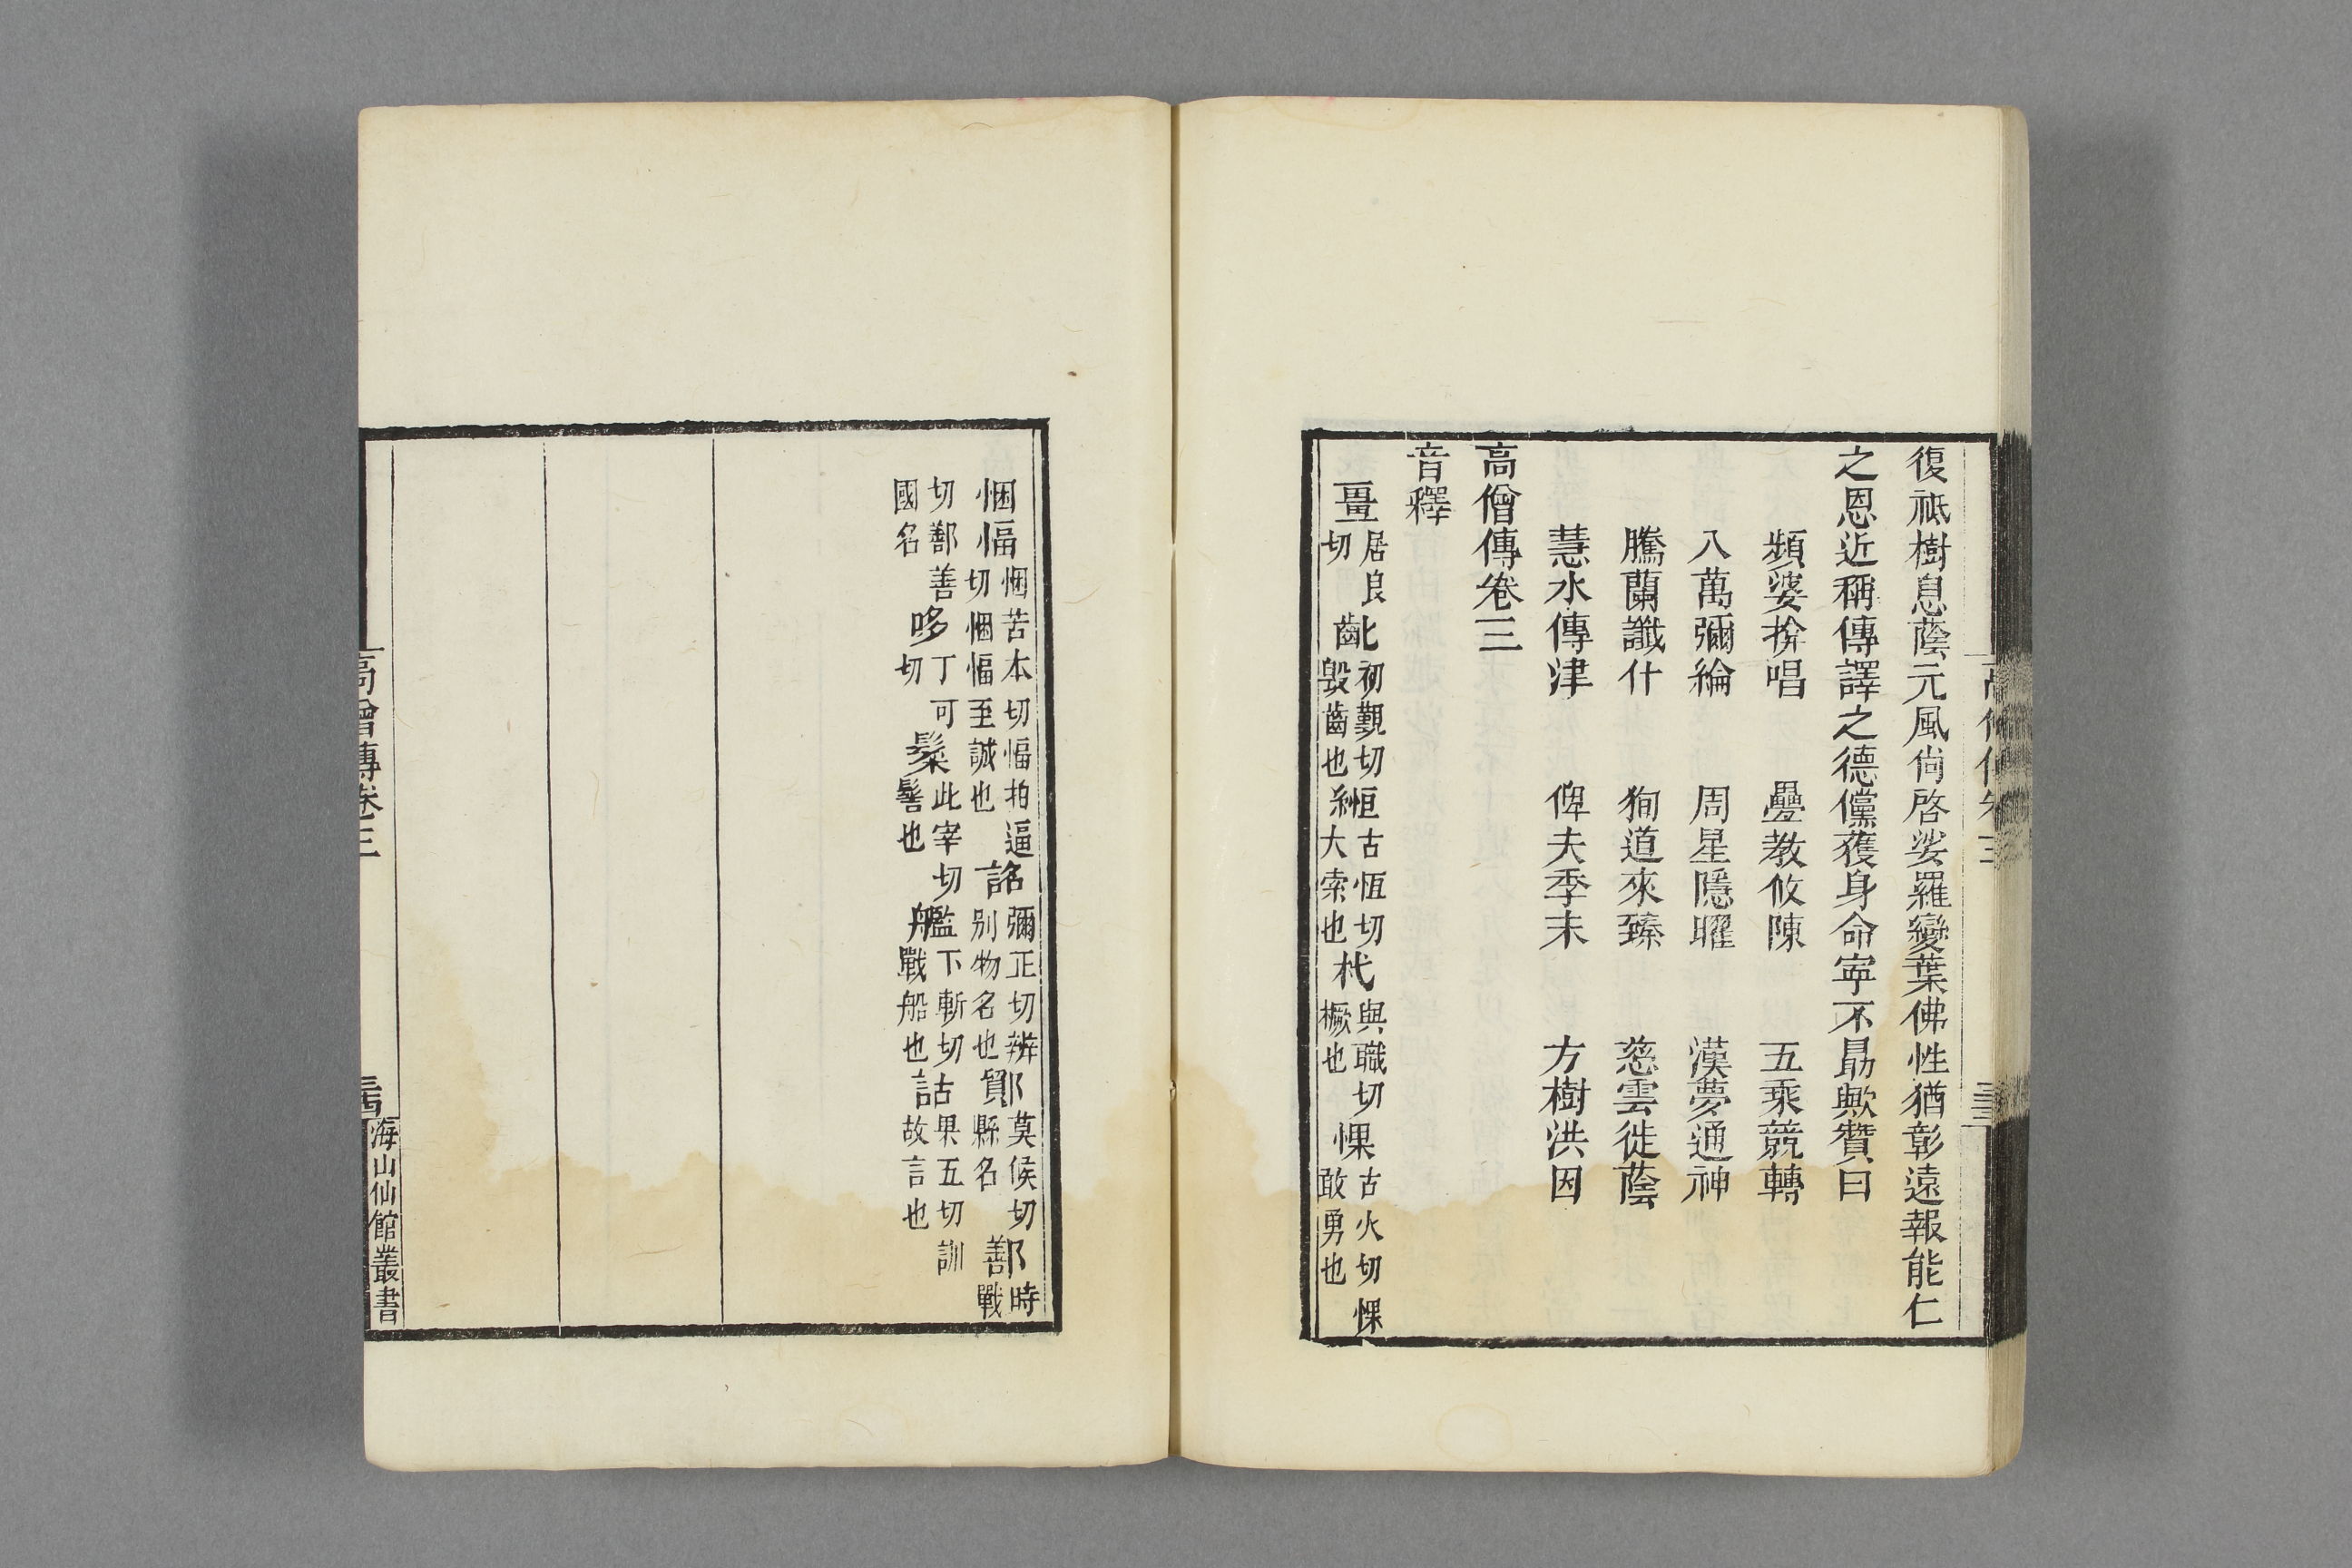 復祇樹息蔭元風尚啓娑羅變葉佛性猶彰遠報能仁
之恩近稱傳譯之德儻獲身命寧不勗歟贊曰
頻婆揜唱 疊教攸陳 五乘競轉
八萬彌綸 周星隱曜 漢夢通神
騰蘭讖什 殉道來臻 慈雲徙蔭
慧水傳津 俾夫季末 方樹洪因
高僧傳卷三
音釋
畺居良切 齔初覲切毀齒也 縆古恆切大索也 杙與職切橛也 惈古火切惈敢勇也
悃愊悃苦本切愊拍逼切悃愊至誠也 詺彌正切辨别物名也 鄮莫候切縣名 鄯時戰切鄯善國名
哆丁可切 䰂此宰切髻也 艦下斬切戰船也 詁果五切訓故言也
高僧傳卷三
海山仙館叢書